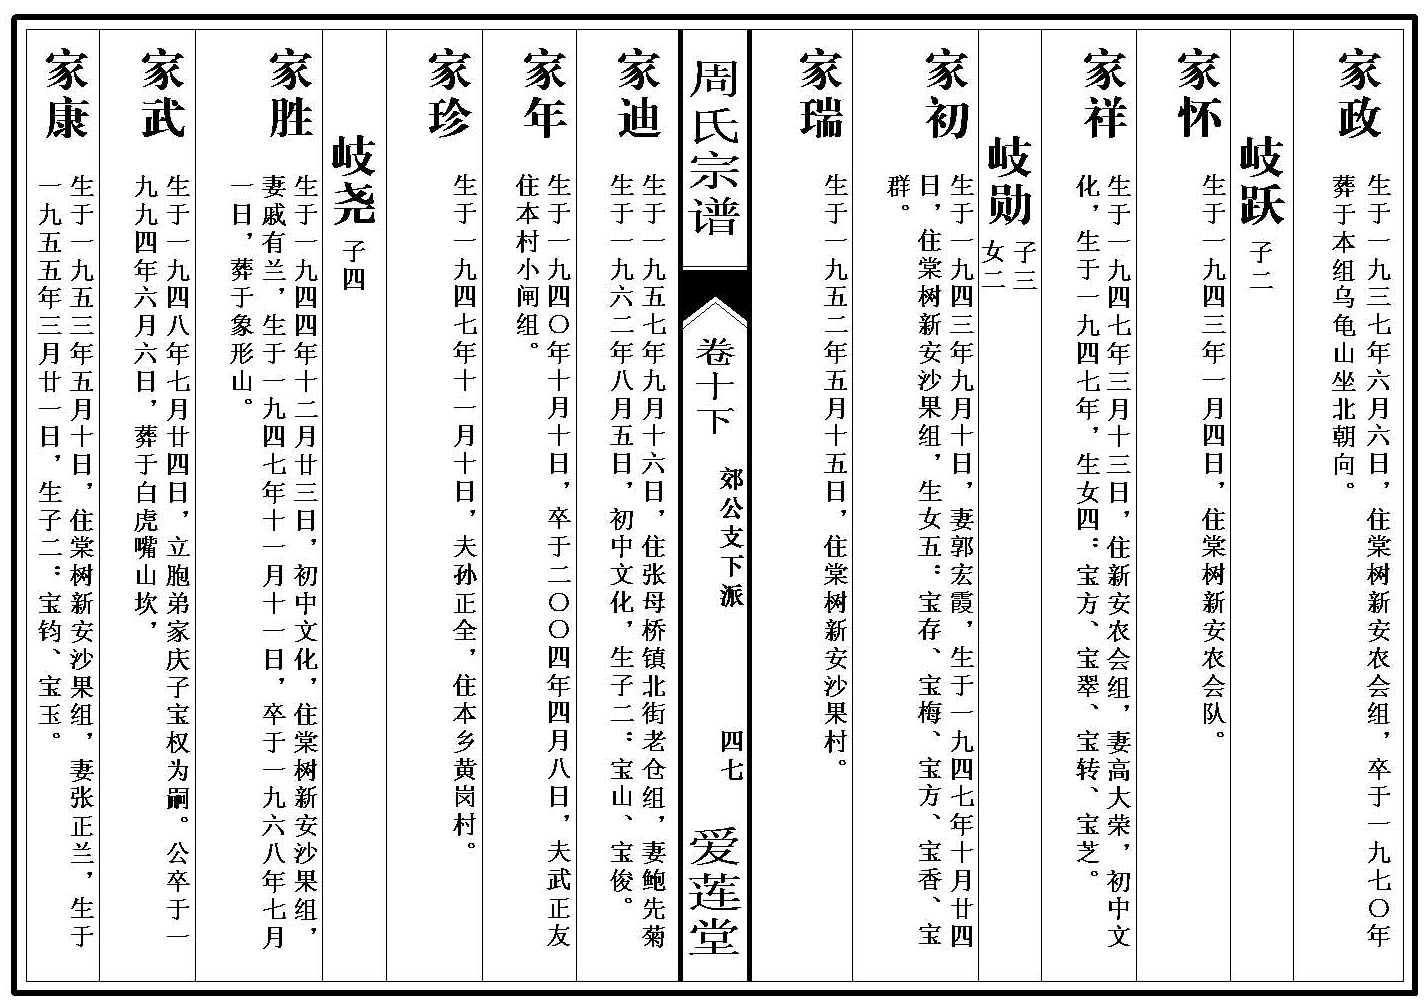 家政
生于一九三七年六月六日，住棠树新安农会组，卒于一九七〇年
葬于本组乌龟山坐北朝向。
岐跃
子二
家怀
生于一九四三年一月四日，住棠树新安农会队。
家祥
生于一九四七年三月十三日，住新安农会组，妻高大荣，初中文
化，生于一九四七年，生女四：宝方、宝翠、宝转、宝芝。
岐勋
子三
女二
家初
生于一九四三年九月十日，妻郭宏霞，生于一九四七年十月廿四
日，住棠树新安沙果组，生女五：宝存、宝梅、宝方、宝香、宝
群。
家瑞
生于一九五二年五月十五日，住棠树新安沙果村。
周氏宗谱
卷十下
郊公支下派
四七
爱莲堂
家迪
生于一九五七年九月十六日，住张母桥镇北街老仓组，妻鲍先菊
生于一九六二年八月五日，初中文化，生子二：宝山、宝俊。
家年
生于一九四〇年十月十日，卒于二〇〇四年四月八日，夫武正友
住本村小闸组。
家珍
生于一九四七年十一月十日，夫孙正全，住本乡黄岗村。
岐尧
子四
家胜
生于一九四四年十二月廿三日，初中文化，住棠树新安沙果组，
妻戚有兰，生于一九四七年十一月十一日，卒于一九六八年七月
一日，葬于象形山。
家武
生于一九四八年七月廿四日，立胞弟家庆子宝权为嗣。公卒于一
九九四年六月六日，葬于白虎嘴山坎，
家康
生于一九五三年五月十日，住棠树新安沙果组，妻张正兰，生于
一九五五年三月廿一日，生子二：宝钧、宝玉。